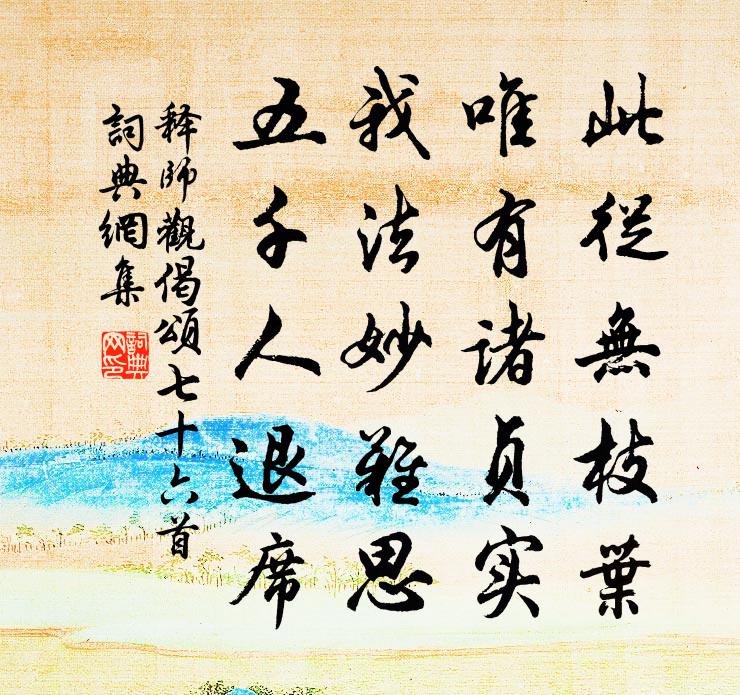 此從無枝葉
唯有諸貞实
我法妙難思
五千人退席
释師觀偈頌七十六首
詞典網集
詞典
网印